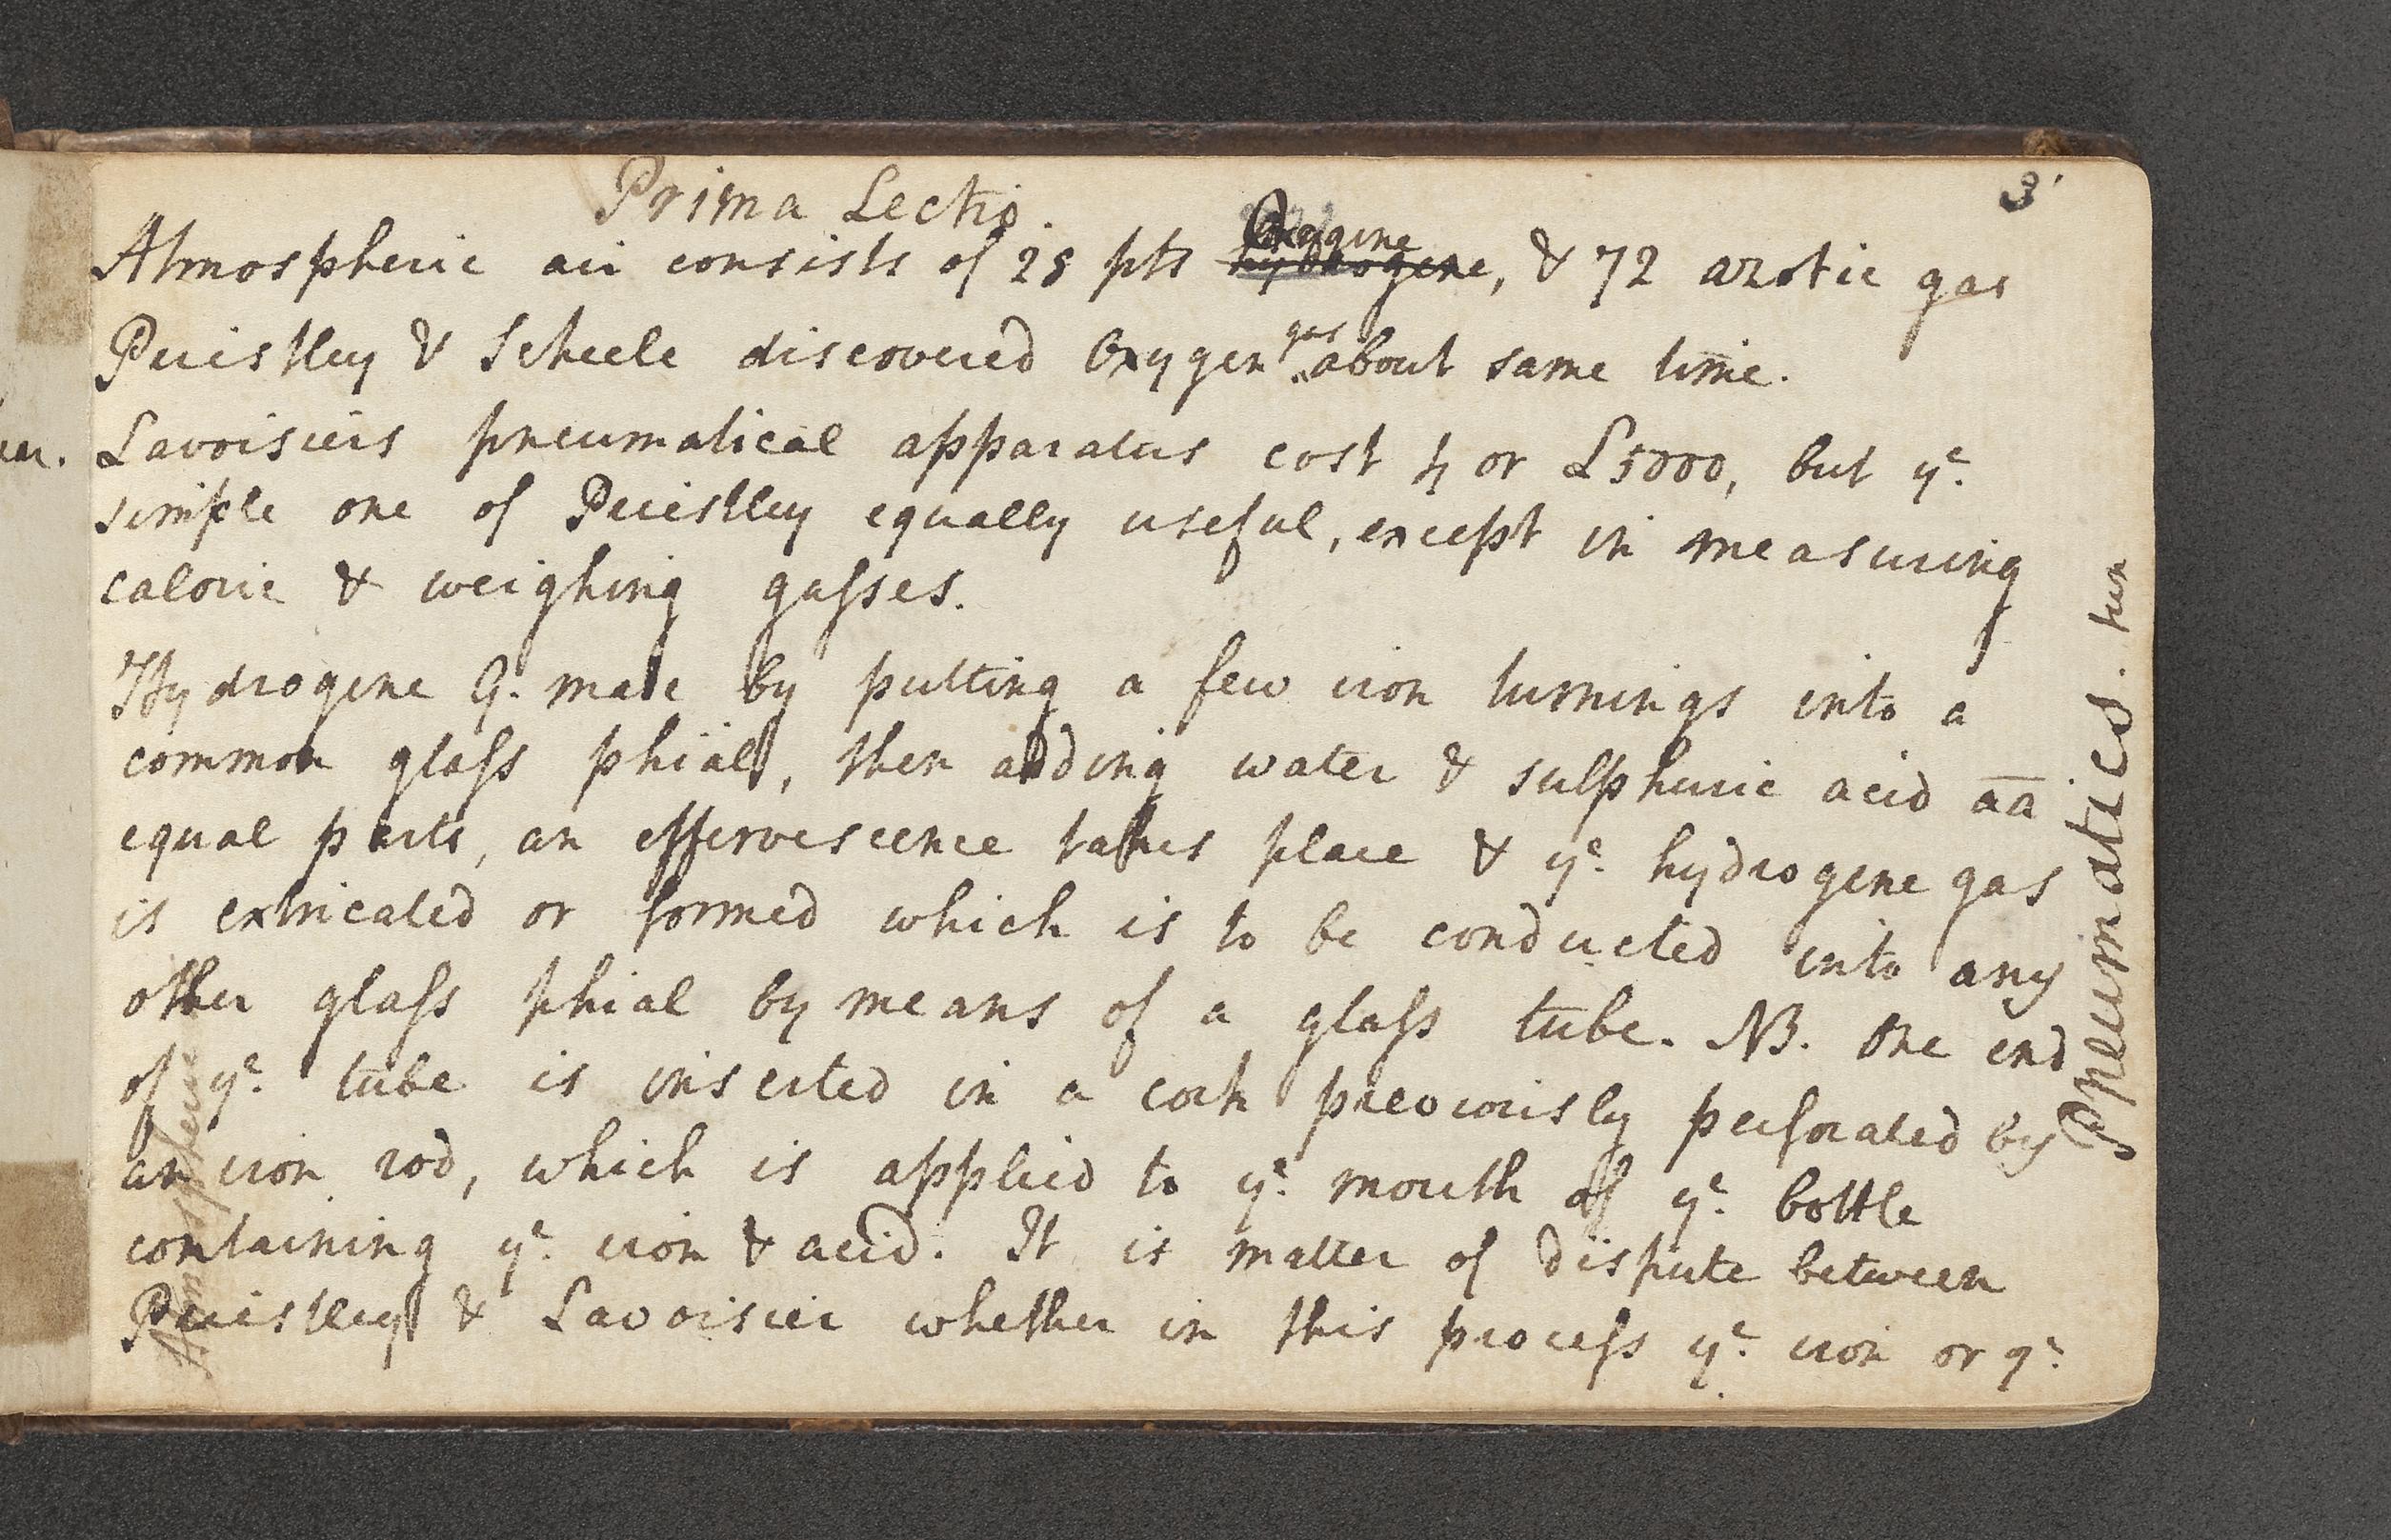 3
Prima Lectio.
Atmospheric air consists of 28 pts hydrogene Oxygene, & 72 azotic gas
Preistley & Scheele discovered Oxygen gas about same time.
Lavoisiers pneumatical apparatus cost 4 or £5000, but ye.
simple one of Preistley equally useful, except in measuring
caloric & weighing gasses.
Hydrogene G. made by putting a few iron turnings into a
common glass phial, then adding water & sulphuric acid āā
equal parts, an effervescence takes place & ye. hydrogene gas
is extricated or formed which is to be conducted into any
other glass phial by means of a glass tube. NB. One end
of ye. tube is inserted in a cork previously perforated by
an iron rod, which is applied to ye. mouth of ye. bottle
containing ye. iron & acid. It is matter of dispute between
Preistley & Lavoisier whether in this process ye. iron or ye.
Pneumatics.
Atmospheric